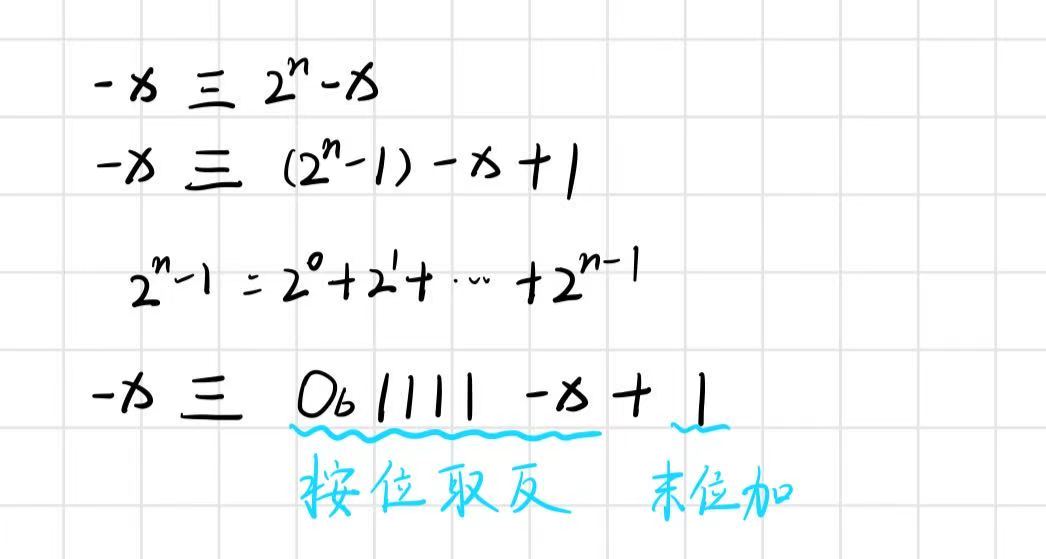 -x ≡ 2ⁿ-x
-x ≡ (2ⁿ-1)-x+1
2ⁿ-1=2⁰+2¹+…+2ⁿ⁻¹
-x ≡ 0b1111 -x + 1
按位取反 末位加